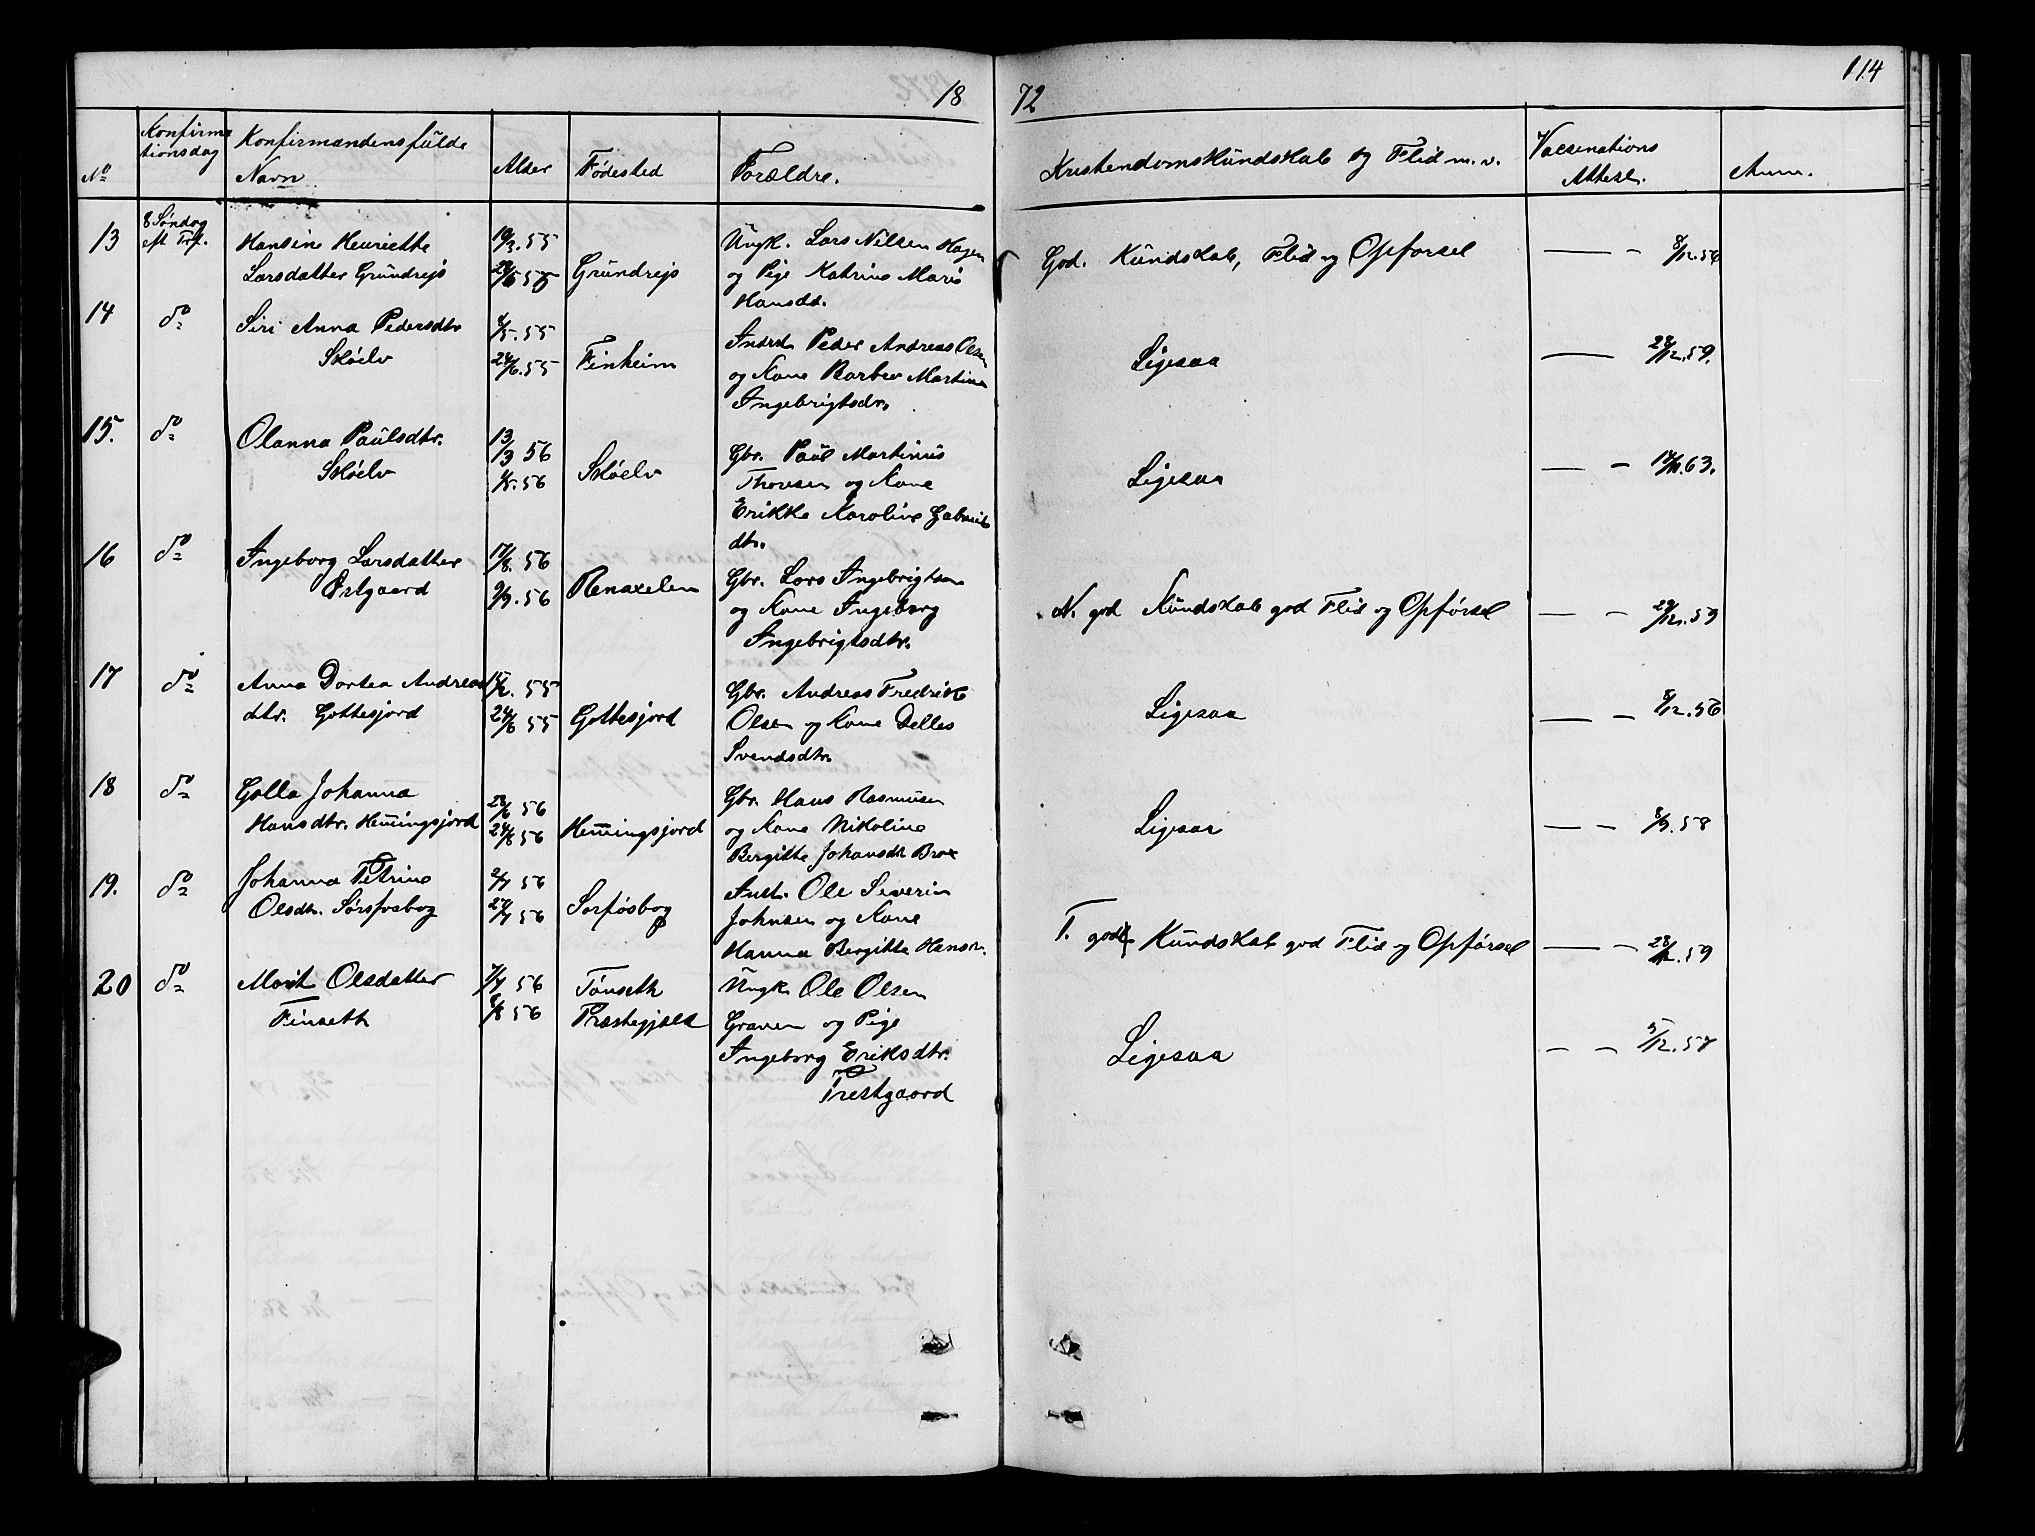 18
72
114
No
Konfirma
tionsdag
Konfirmandens fulde
Navn
Alder
Fødested
Forældre.
Kristendomskundskab og Flid m. v.
Vaccinations
Attest.
Anm.
13
8 Søndag
eft Tref.
Hansine Henriette
Larsdatter Grundrejs
19/3. 55
Grundrejs
Ungk. Lars Nilsen Hagen
og Pige Katrine Marie
Hansdt.
God. Kundskab, Flid og Opførsel
8/12. 56
14
do
Siri Anna Pedersdtr
Skøelv
4/5. 55
24/6. 55
Finheim
Indrd Peder Andreas Olsen
og Kone Barber Martina
Ingebrigtsdr.
Ligesaa
28/12. 59.
15.
do
Olanna Paulsdtr.
Skøelv
13/3 56
1/5. 56
Skøelv
Gbr. Paul Martinus
Thorsen og Kone
Erikke Karoline Gabriels
dtr.
Ligesaa
63.
16
do
Ingeborg Larsdatter
Østgaard
17/8. 56
9/9. 56
Renaxelen
Gbr. Lars Ingebrigtsen
og Kone Ingeborg
Ingebrigtsdtr.
N. god Kundskab god Flid og Opførsel
29/12. 59
17
do
Anna Dortea Andreas
dtr. Gottesjord
15/2. 55
24/6 55
Gottesjord
Gbr. Andreas Fredrik
Olsen og Kone Delles
Svendsdtr.
Ligesaa
8/12. 56
18
do
Golla Johanna
Hansdtr. Hem̅ingsjord
23/6 56
24/8 56
Hem̅ingsjord
Gbr. Hans Rasmusen
og Kone Nikoline
Bergitte Johansdt Brox
Ligesaa
8/9. 58
19.
do
Johanna Petrine
Olsdtr. Sørsfosbog
2/7 56
27/7 56
Sorfosbog
Inst. Ole Severin
Johnsen og Kone
Hanna Bergitte Hansd.
T. god Kundskab god Flid og Opførsel
59
20
do
Marit Olsdatter
Finseth
7/7 56
8/8 56
Tønseth
Præstegjæld
Ungk. Ole Olsen
Graven og Pige
Ingeborg Eriksdtr.
Trestgaard
Ligesaa
5/12. 57